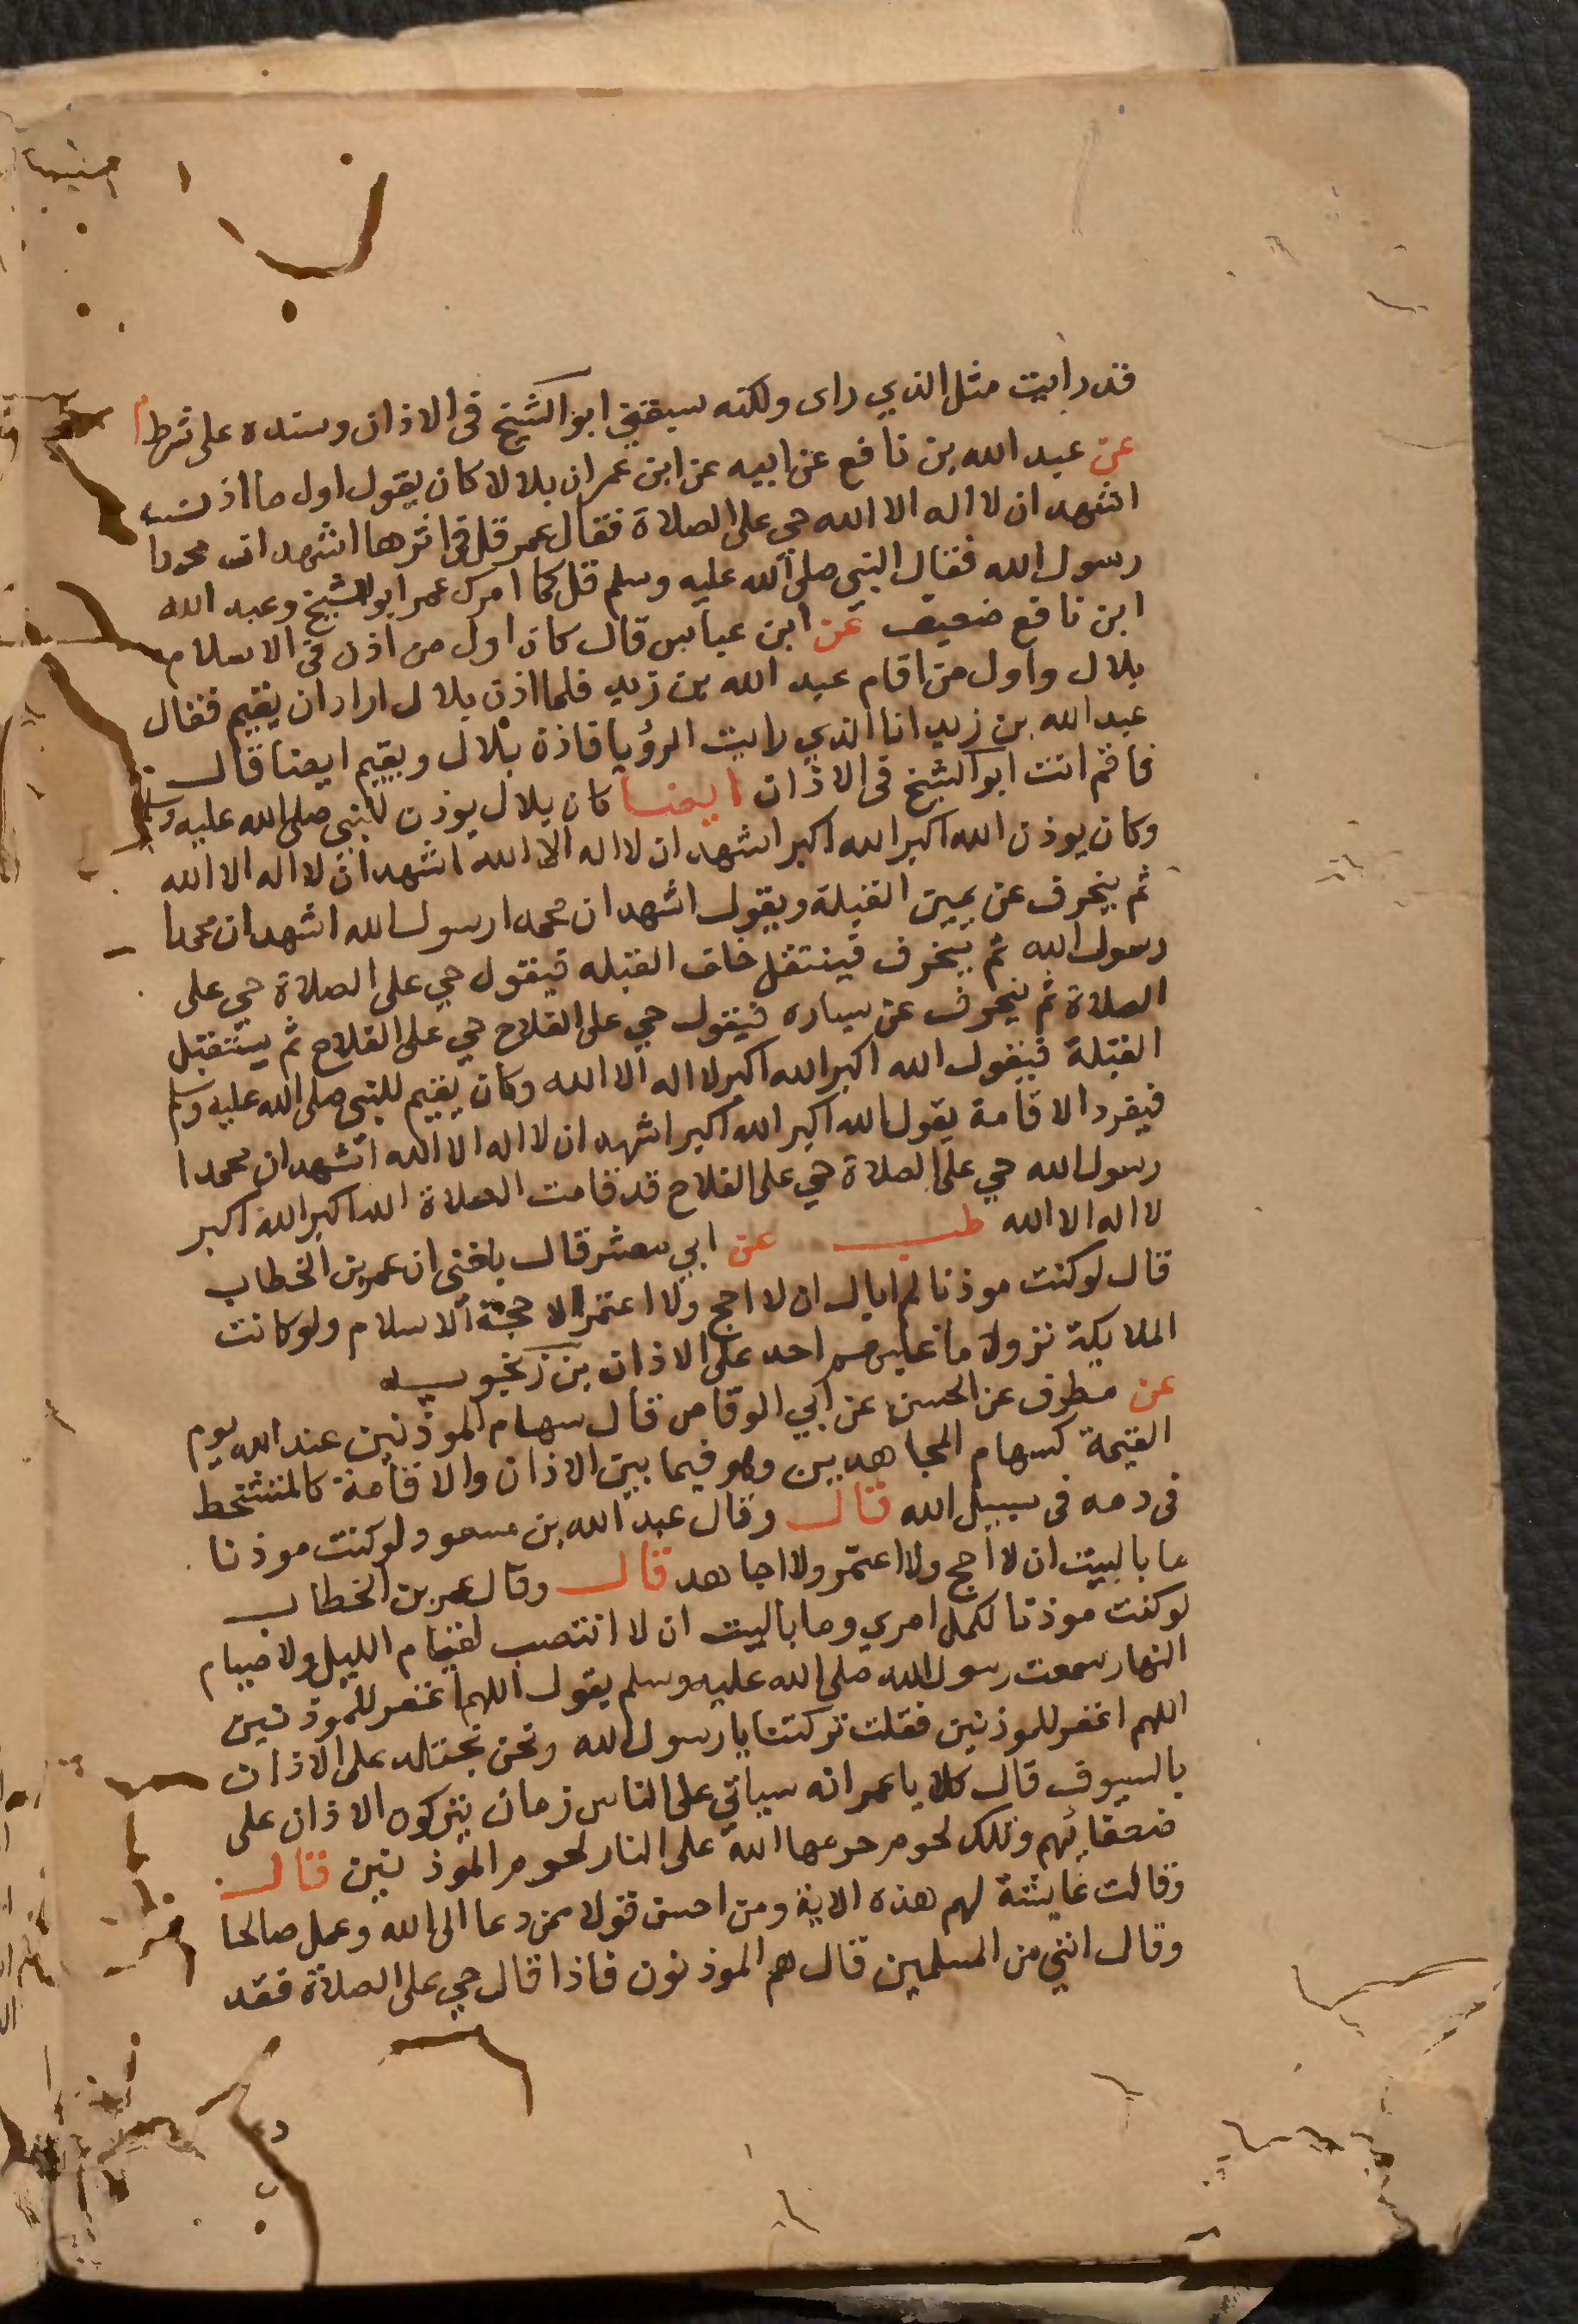 قد رايت مثل الذي راى ولكنه سبقني ابو الشيخ فى الاذان وسنده على شرط م
عن عبد الله بن نافع عن ابيه عن ابن عمر ان بلالا كان يقول اول ما اذن
اشهد ان لا اله الا الله حي على الصلاة فقال عمر قل فى اثرها اشهد ان محمدا
رسول الله فقال النبي صلى الله عليه وسلم قل كما امرك عمر ابو الشيخ وعبد الله
ابن نافع ضعيف عن ابن عباس قال كان اول من اذن فى الاسلام
بلال واول من اقام عبد الله بن زيد فلما اذن بلال اراد ان يقيم فقال
عبد الله بن زيد انا الذي رايت الرؤيا فاذن بلال ويقيم ايضا قال
فاقم انت ابو الشيخ فى الاذان ايضا كان بلال يوذن للنبي صلى الله عليه وسلم
وكان يوذن الله اكبر الله اكبر اشهد ان لا اله الا الله اشهد ان لا اله الا الله
ثم ينحرف عن يمين القبلة ويقول اشهد ان محمدا رسول الله اشهد ان محمدا
رسول الله ثم ينحرف فينتقل خلف القبله فيقول حي على الصلاة حي على
الصلاة ثم ينحرف عن يساره فيقول حي على الفلاح حي على الفلاح ثم يستقبل
القبلة فيقول الله اكبر الله اكبر لا اله الا الله وكان يقيم للنبي صلى الله عليه وسلم
فيفرد الاقامة يقول الله اكبر الله اكبر اشهد ان لا اله الا الله اشهد ان محمدا
رسول الله حي على الصلاة حي على الفلاح قد قامت الصلاة الله اكبر الله اكبر
لا اله الا الله طب عن ابي معشر قال بلغنى ان عمر بن الخطاب
قال لو كنت موذنا لم ابال ان لا احج ولا اعتمر الا حجة الاسلام ولو كانت
الملايكة نزولا ما غلبهم احد على الاذان بن زنجويه
عن مطرف عن الحسن عن ابي الوقاص قال سهام الموذنين عند الله يوم
القيمة كسهام المجاهدين وهو فيما بين الاذان والاقامة كالمتشحط
فى دمه فى سبيل الله قال وقال عبد الله بن مسعود لو كنت موذنا
ما باليت ان لا احج ولا اعتمر ولا اجاهد قال وقال عمر بن الخطاب
لو كنت موذنا لكمل امري وما باليت ان لا انتصب لقيام الليل ولا صيام
النهار سمعت رسول الله صلى الله عليه وسلم يقول اللهم اغفر للموذنين
اللهم اغفر للموذنين فقلت تركتنا يا رسول الله ونحن نجتلد على الاذان
بالسيوف قال كلا يا عمر انه سياتي على الناس زمان يتركون الاذان على
ضعفائهم وتلك لحوم حرمها الله على النار لحوم الموذنين قال
وقالت عايشة لهم هذه الاية ومن احسن قولا ممن دعا الى الله وعمل صالحا
وقال انني من المسلمين قال هم الموذنون فاذا قال حي على الصلاة فقد